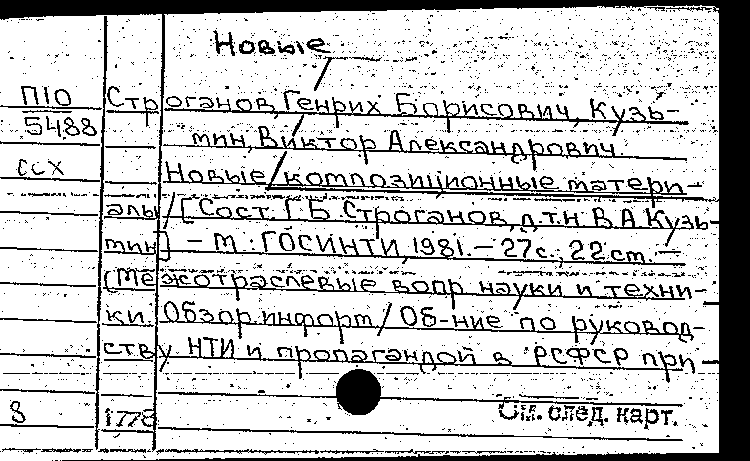 Новые
П10 Строганов, Генрих Борисович, Кузь-
5488 мин, Виктор Александрович.
ссх Новые композиционные матери-
алы / [Сост. Г.Б. Строганов, д.т.н. В.А. Кузь-
мин] – М.: ГОСИНТИ, 1981. – 27 с.; 22 см. –
(Межотраслевые вопр. науки и техни-
ки. Обзор. информ / Об-ние по руковод-
ству НТИ и пропагандой в РСФСР при
8 1778 См. след. карт.